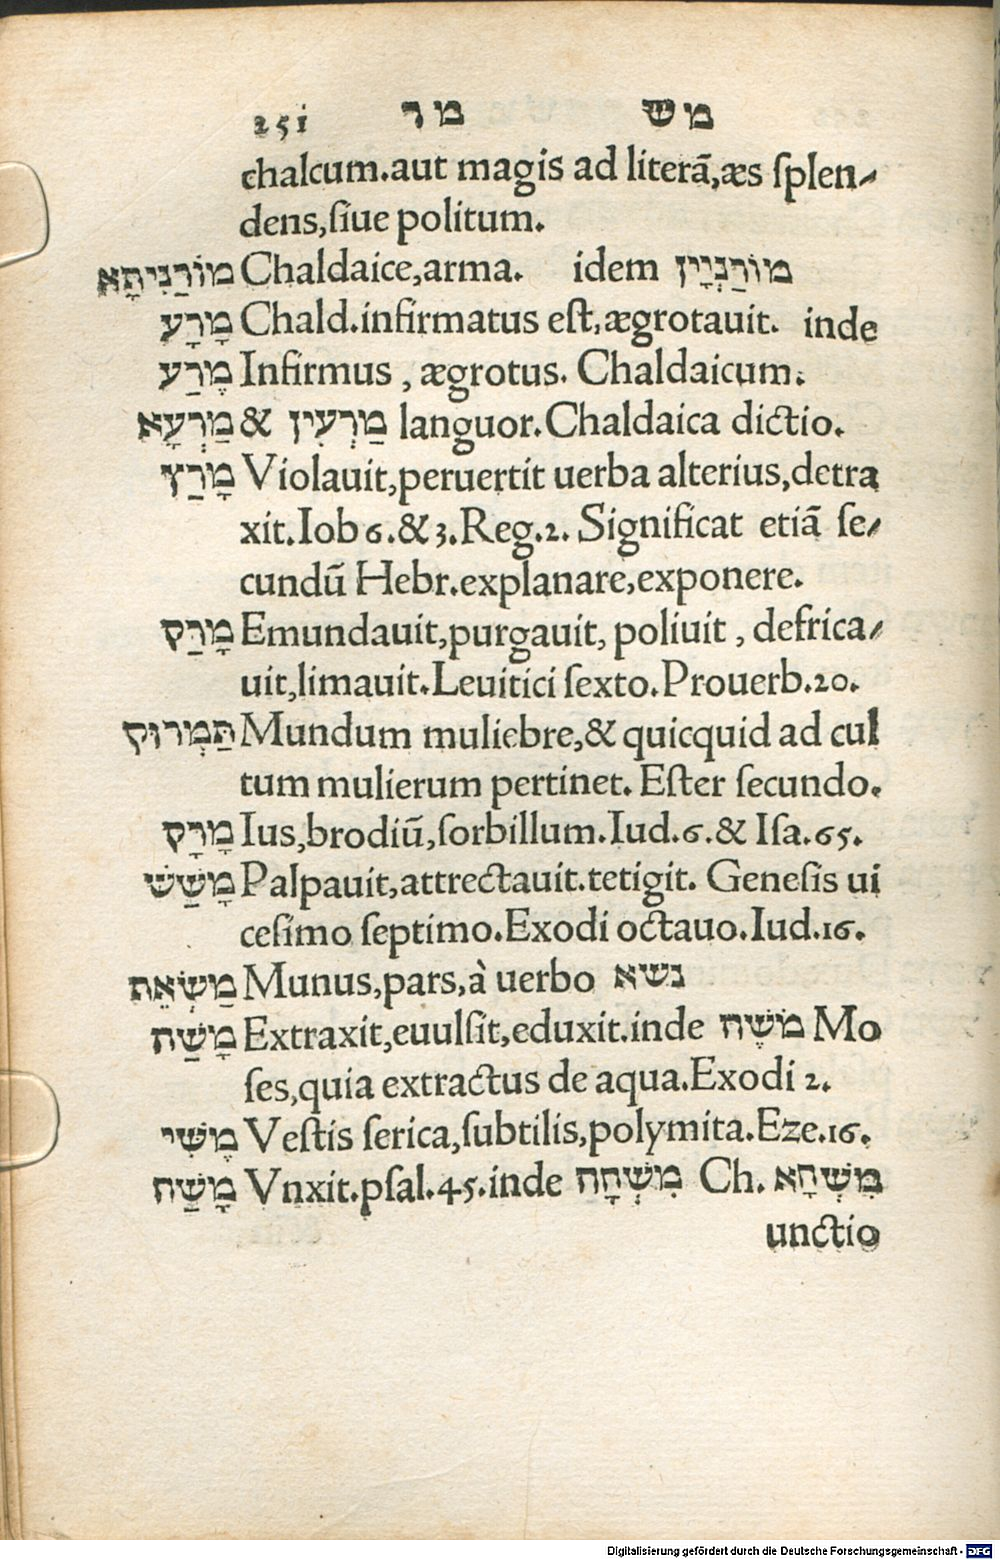 251 מר מש
chalcum.aut magis ad literā,æs splen-
dens,siue politum.
מוֹרַנִיתָא Chaldaice,arma. idem מוֹרַנְיָין
מָרָע Chald.infirmatus est,ægrotauit. inde
מֶרַע Infirmus , ægrotus. Chaldaicum.
מַרְעָא & מַרְעִין languor.Chaldaica dictio.
מָרַץ Violauit,peruertit uerba alterius,detra
xit.Iob 6.&3.Reg.2. Significat etiā se-
cundū Hebr.explanare,exponere.
מָרַק Emundauit,purgauit, poliuit , defrica-
uit,limauit.Leuitici sexto.Prouerb.20.
תַּמְרוּק Mundum muliebre,& quicquid ad cul
tum mulierum pertinet. Ester secundo.
מָרָק Ius,brodiū,sorbillum.Iud.6.& Isa.65.
מָשַׁשׁ Palpauit,attrectauit.tetigit. Genesis ui
cesimo septimo.Exodi octauo.Iud.16.
מַשְׂאֵת Munus,pars,à uerbo נשא
מָשַׁה Extraxit,euulsit,eduxit.inde מֹשֶׁה Mo
ses,quia extractus de aqua.Exodi 2.
מֶשִׁי Vestis serica,subtilis,polymita.Eze.16.
מָשַׁח Vnxit.psal.45.inde מִשְׁחָה Ch. מִשְׁחָא
unctio
Digitalisierung gefördert durch die Deutsche Forschungsgemeinschaft - DFG